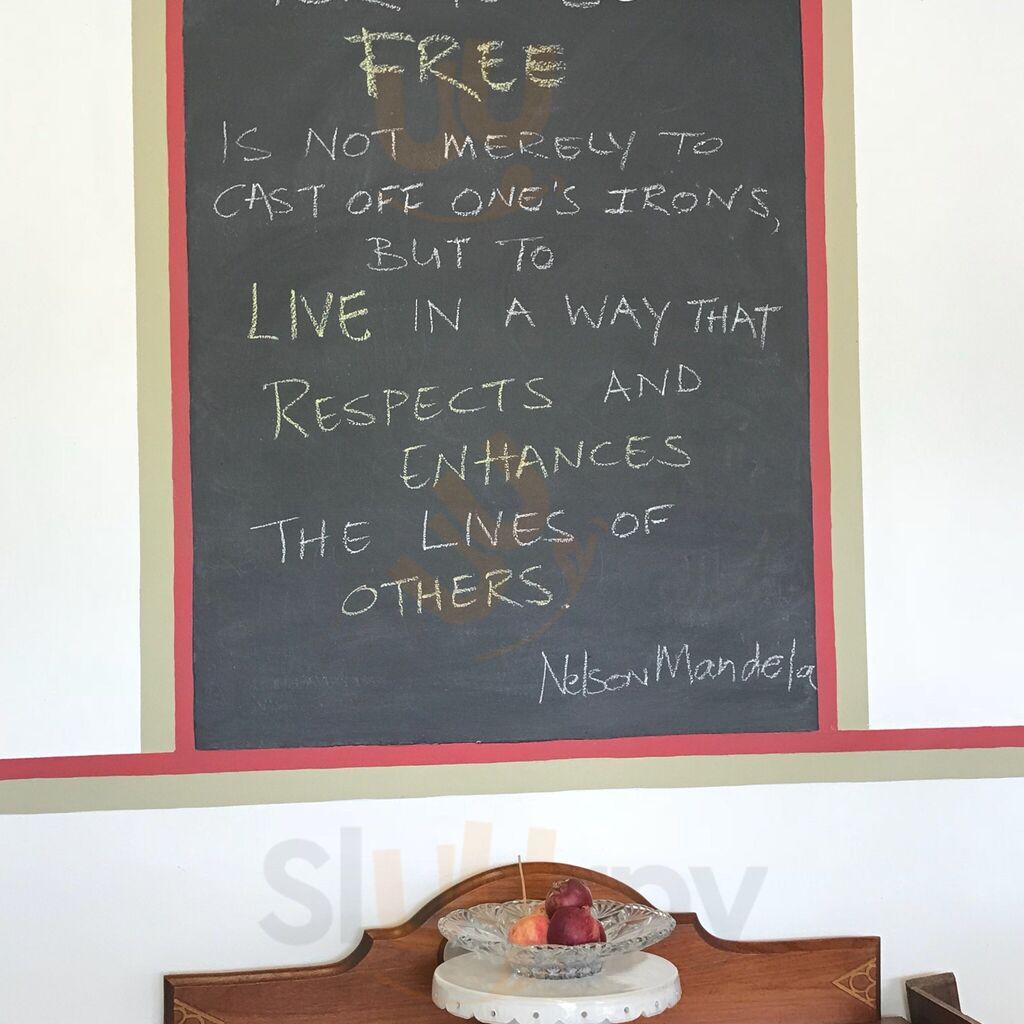 FREE
IS NOT MERELY TO
CAST OFF ONE'S IRONS,
BUT TO
LIVE IN A WAY THAT
RESPECTS AND
ENHANCES
THE LIVES OF
OTHERS.
Nelson Mandela
Slurrpy